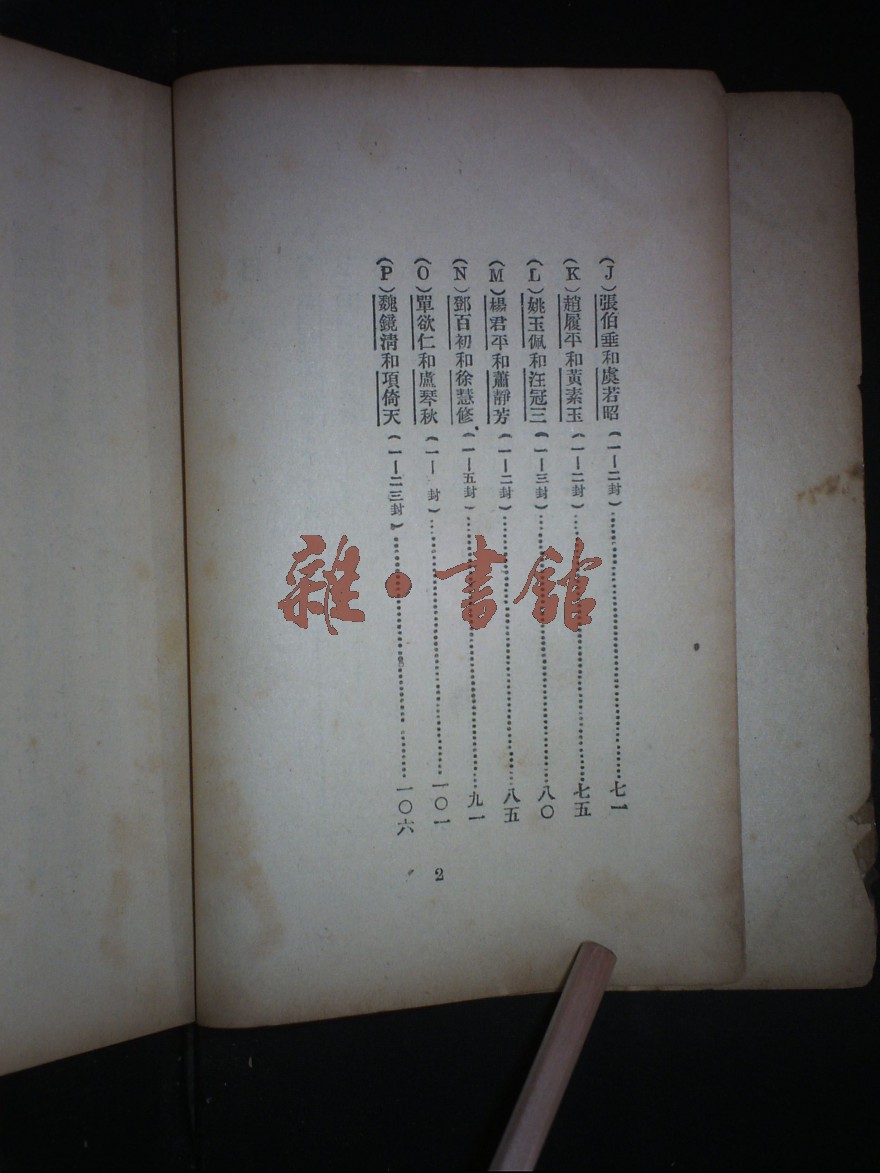 (J)張伯垂和虞若昭(一—二封)……七一
(K)趙履平和黃素玉(一—二封)……七五
(L)姚玉佩和汪冠三(一—三封)……八〇
(M)楊君平和蕭靜芳(一—二封)……八五
(N)鄧百初和徐慧修(一—五封)……九一
(O)單欲仁和盧琴秋(一— 封)……一〇一
(P)魏鏡清和項倚天(一—二三封)……一〇六
2
雜·書館